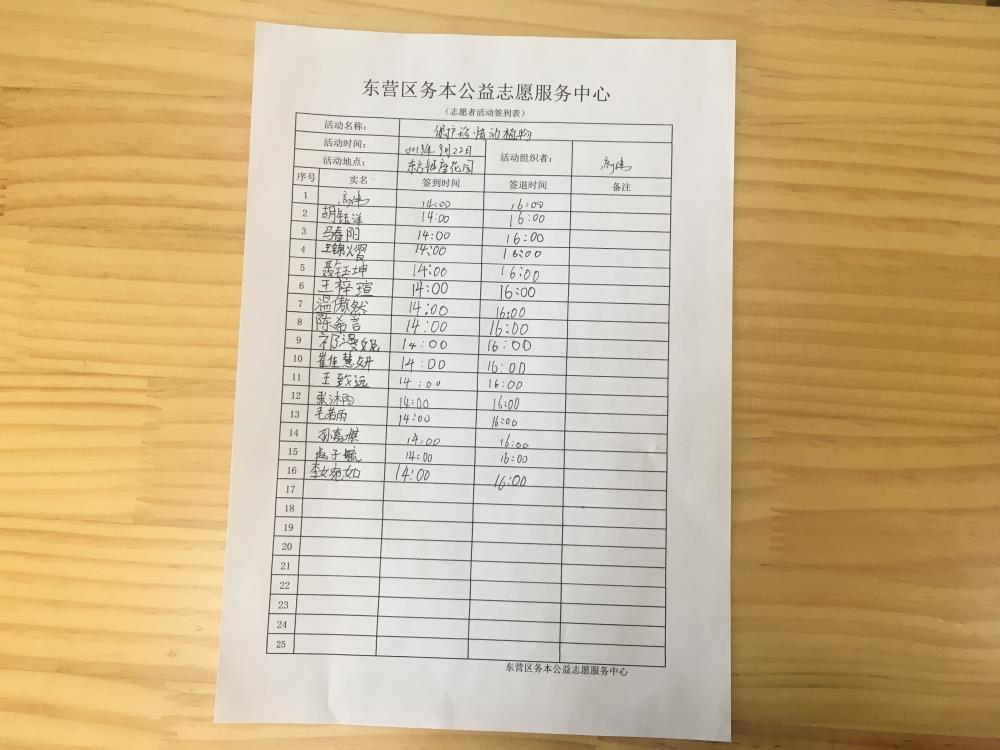 东营区务本公益志愿服务中心
（志愿者活动签到表）
活动名称： 保护珍惜动植物
活动时间： 2019年9月22日 活动组织者： 高伟
活动地点： 东方银座花园
序号 实名 签到时间 签退时间 备注
1 高伟 14:00 16:00
2 胡钰洋 14:00 16:00
3 马春阳 14:00 16:00
4 王锦熠 14:00 16:00
5 聂钰坤 14:00 16:00
6 王梓瑄 14:00 16:00
7 温傲然 14:00 16:00
8 陈希言 14:00 16:00
9 祁漫妮 14:00 16:00
10 崔佳慧妍 14:00 16:00
11 王致远 14:00 16:00
12 张沐阳 14:00 16:00
13 毛若雨 14:00 16:00
14 孙嘉祺 14:00 16:00
15 子毓 14:00 16:00
16 李婉如 14:00 16:00
17
18
19
20
21
22
23
24
25
东营区务本公益志愿服务中心